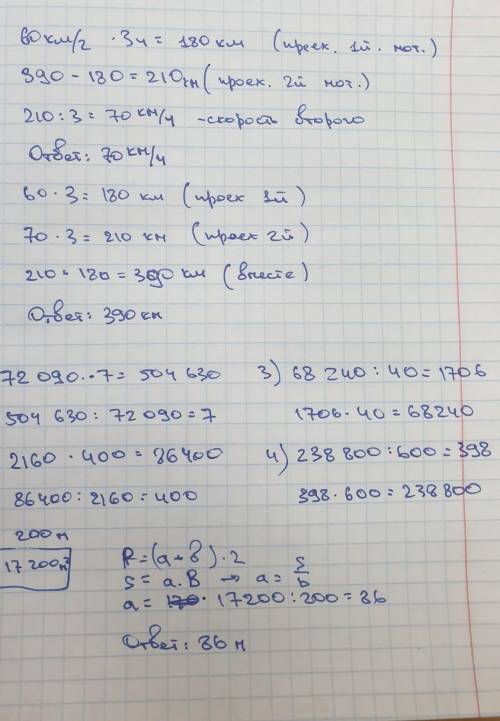 60 км/г · 3ч = 180 км (проек. 1й. мот.)
390 - 180 = 210 км (проек. 2й мот.)
210 : 3 = 70 км/ч - скорость второго
Ответ: 70 км/ч
60 · 3 = 180 км (проек 1й)
70 · 3 = 210 км (проек 2й)
210 + 180 = 390 км (вместе)
Ответ: 390 км
72 090 · 7 = 504 630
504 630 : 72 090 = 7
2160 · 400 = 86400
86400 : 2160 = 400
3) 68 240 : 40 = 1706
1706 · 40 = 68240
4) 238 800 : 600 = 398
398 · 600 = 238 800
200 м
17 200 м²
P = (a + b) · 2
S = a · B → a = S/b
a = 17200 : 200 = 86
Ответ: 86 м